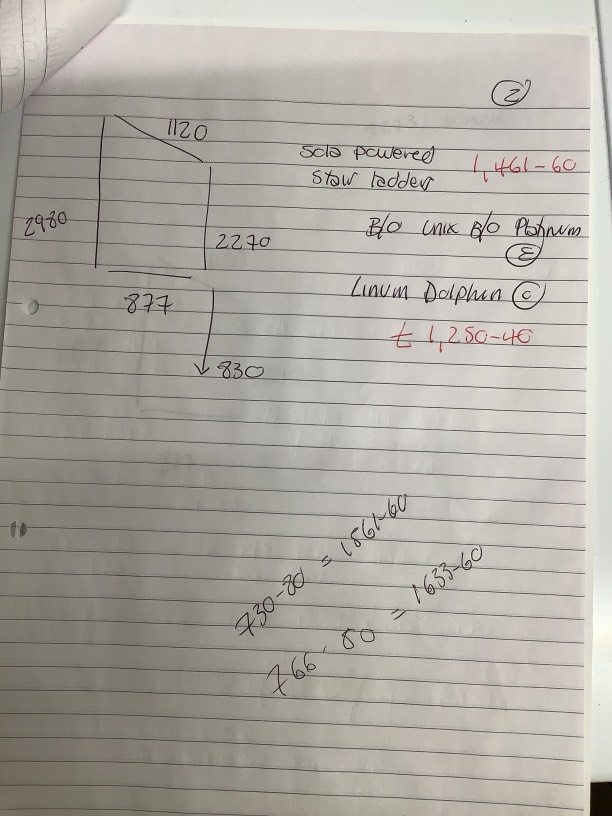 2
1120
Sola powered 1,461-60
Stow ladder
2980
2270
B/O Unix B/O Platinum
E
Linum Dolphin C
877
£ 1,250-40
830
730-80 = 1861-60
766.80 = 1633-60